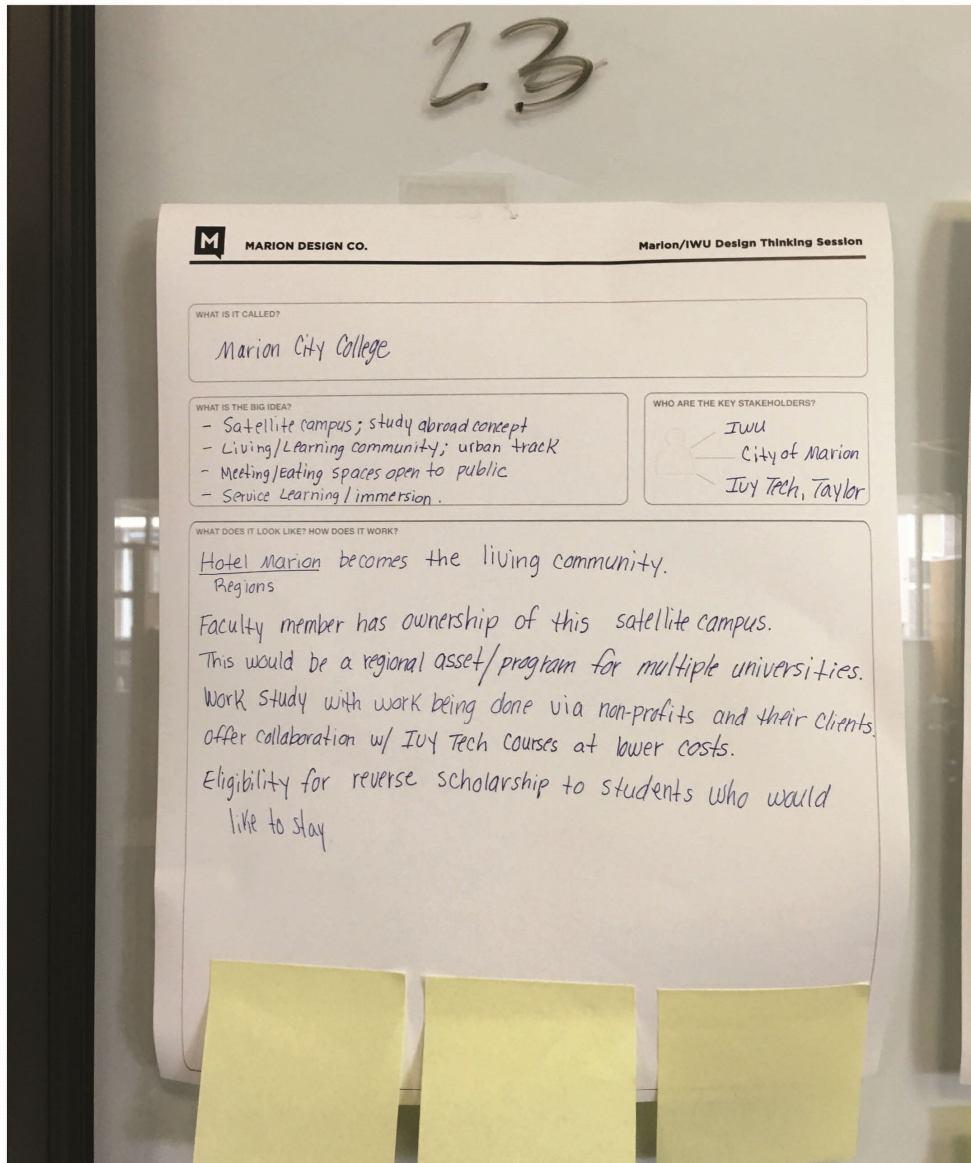 23
M MARION DESIGN CO.
Marion/IWU Design Thinking Session
WHAT IS IT CALLED?
Marion City College
WHAT IS THE BIG IDEA?
- Satellite campus; study abroad concept
- Living/Learning community; urban track
- Meeting/Eating spaces open to public
- Service Learning/immersion.
WHO ARE THE KEY STAKEHOLDERS?
IWU
City of Marion
Ivy Tech, Taylor
WHAT DOES IT LOOK LIKE? HOW DOES IT WORK?
Hotel Marion becomes the living community.
Regions
Faculty member has ownership of this satellite campus.
This would be a regional asset/program for multiple universities.
Work study with work being done via non-profits and their clients.
Offer collaboration w/ Ivy Tech Courses at lower costs.
Eligibility for reverse scholarship to students who would
like to stay